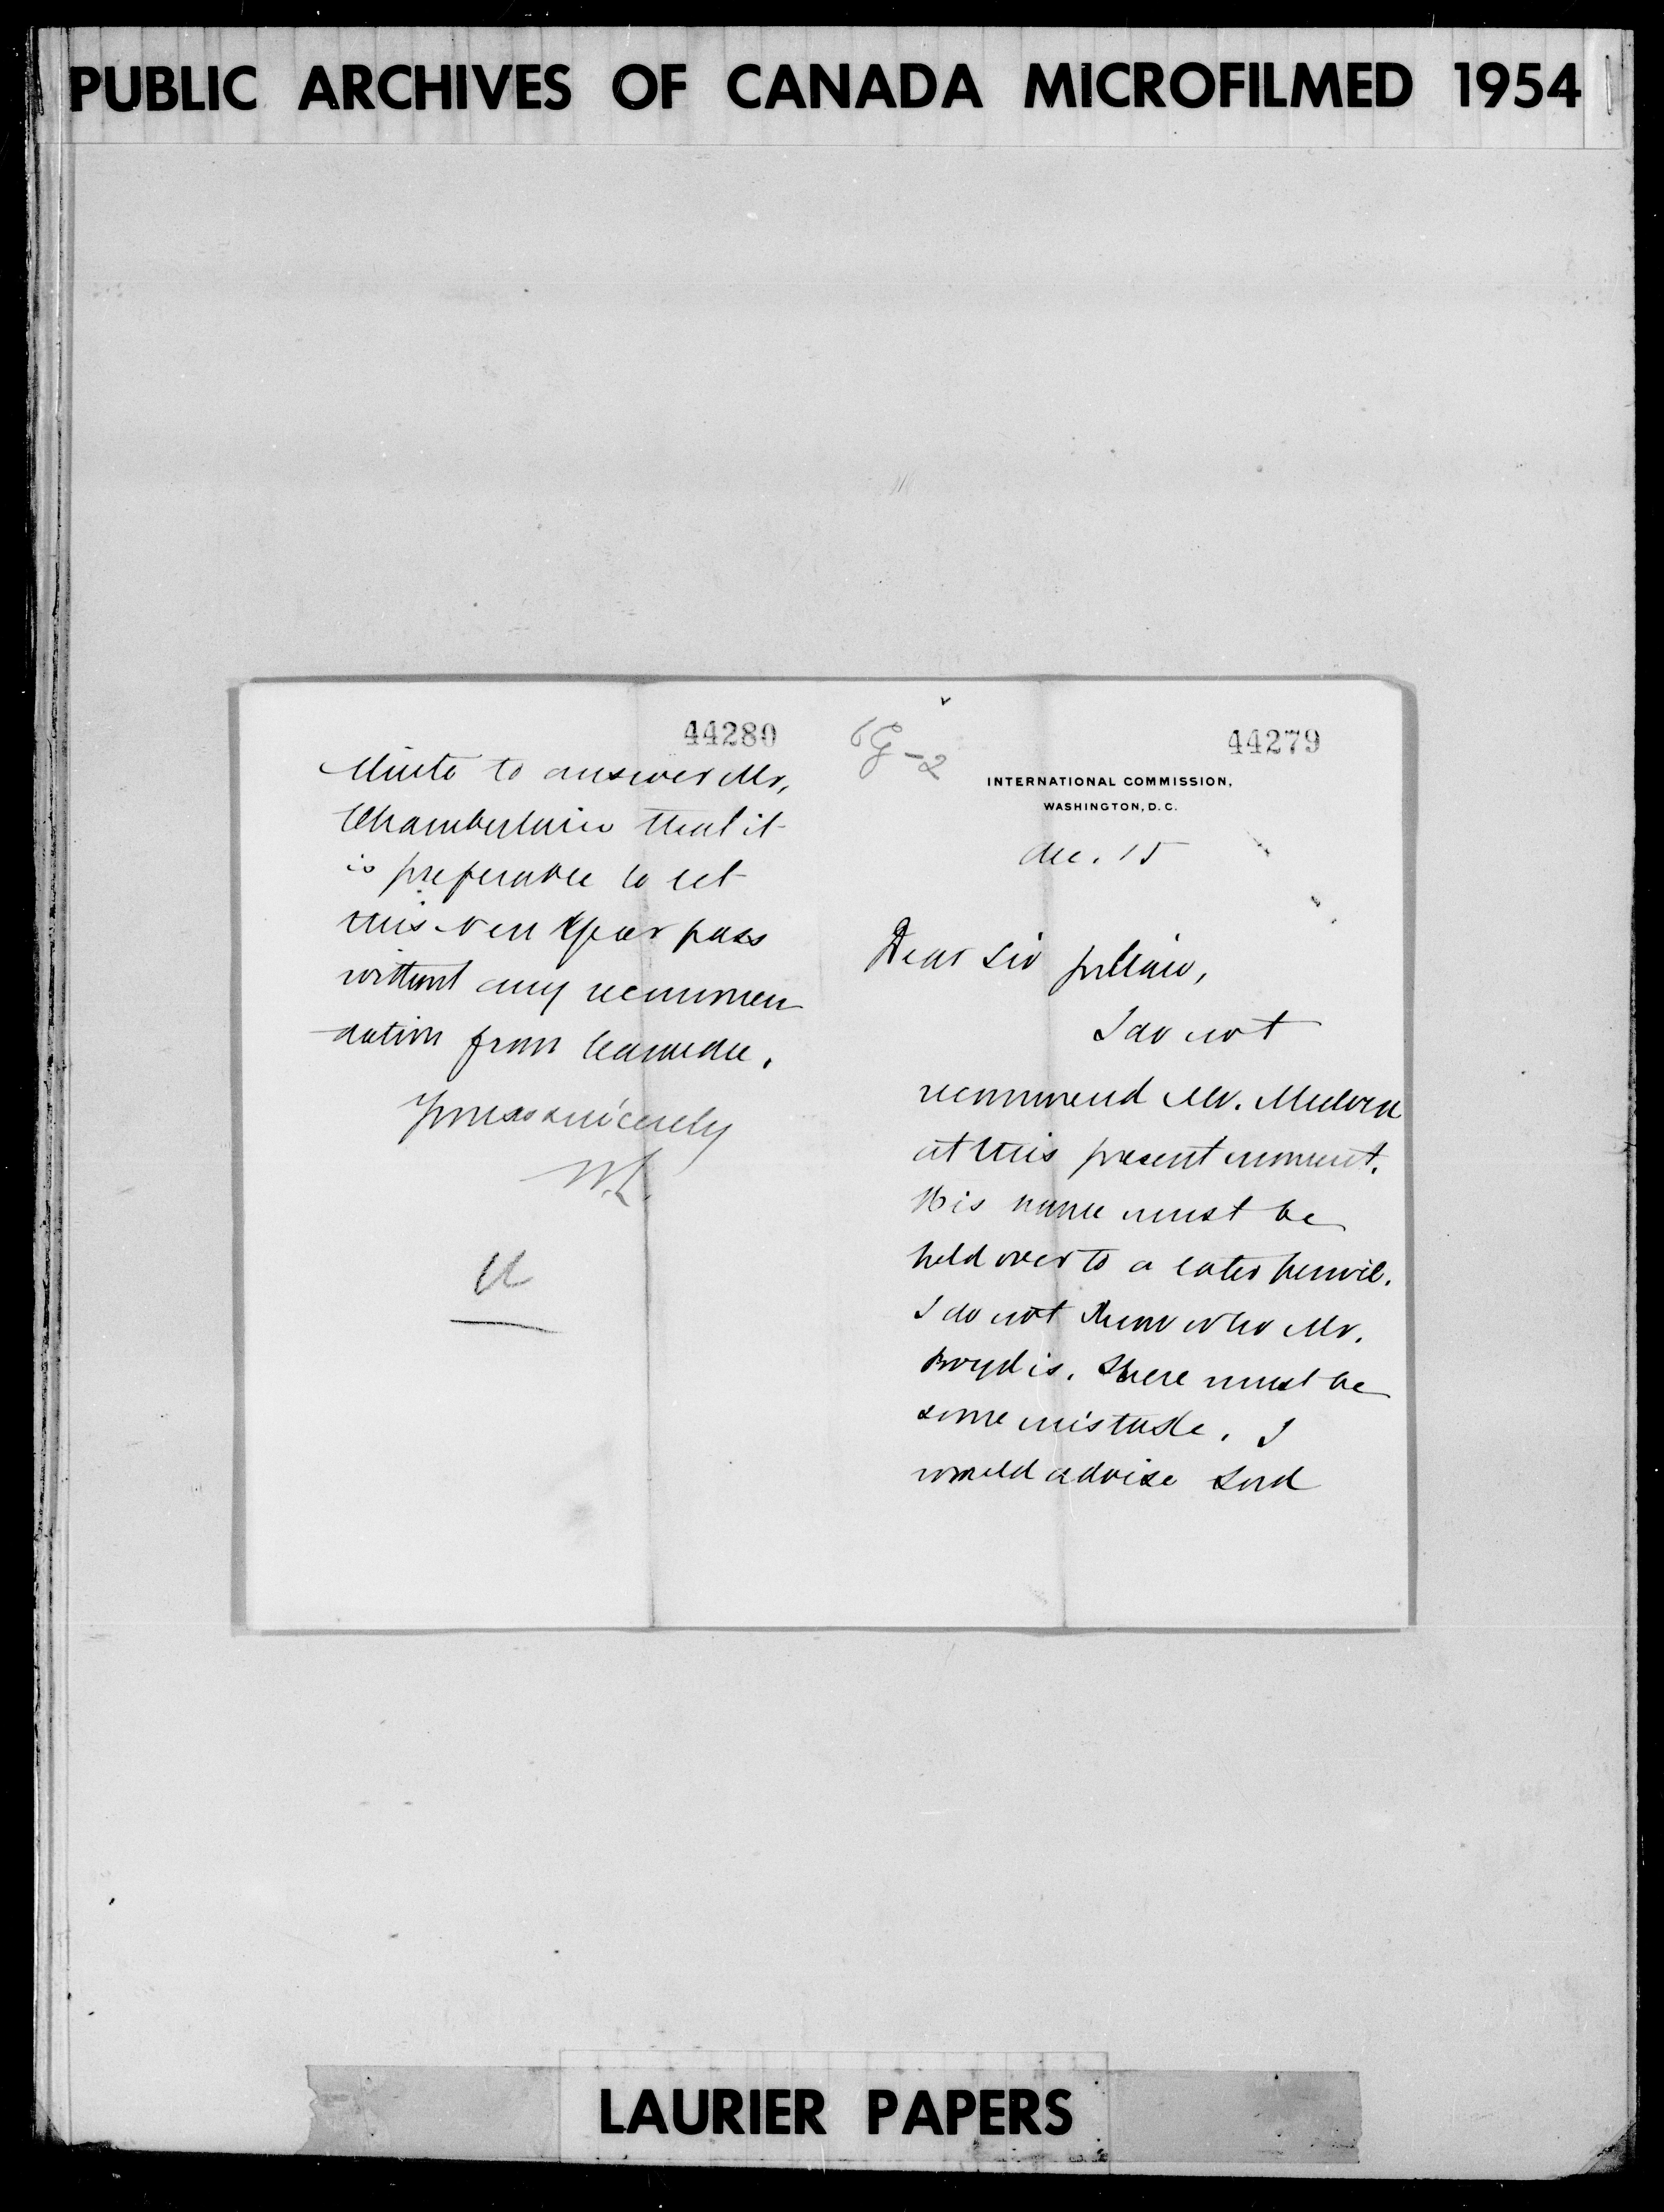 PUBLIC ARCHIVES OF CANADA MICROFILMED 1954
6G-2
44279
INTERNATIONAL COMMISSION,
WASHINGTON, D.C.
Dec. 15
Dear Sir
I do not
recommend Mr. Mulock
at this present moment.
His name must be
held over to a later period.
I do not know who Mr.
Boyd is. There must be
some mistake. I
would advise Lord
44280
Minto to answer Mr.
Chamberlain that it
is preferable to let
this New Year pass
without any recommen
dation from Canada.
Yours sincerely
W.L.
LAURIER PAPERS